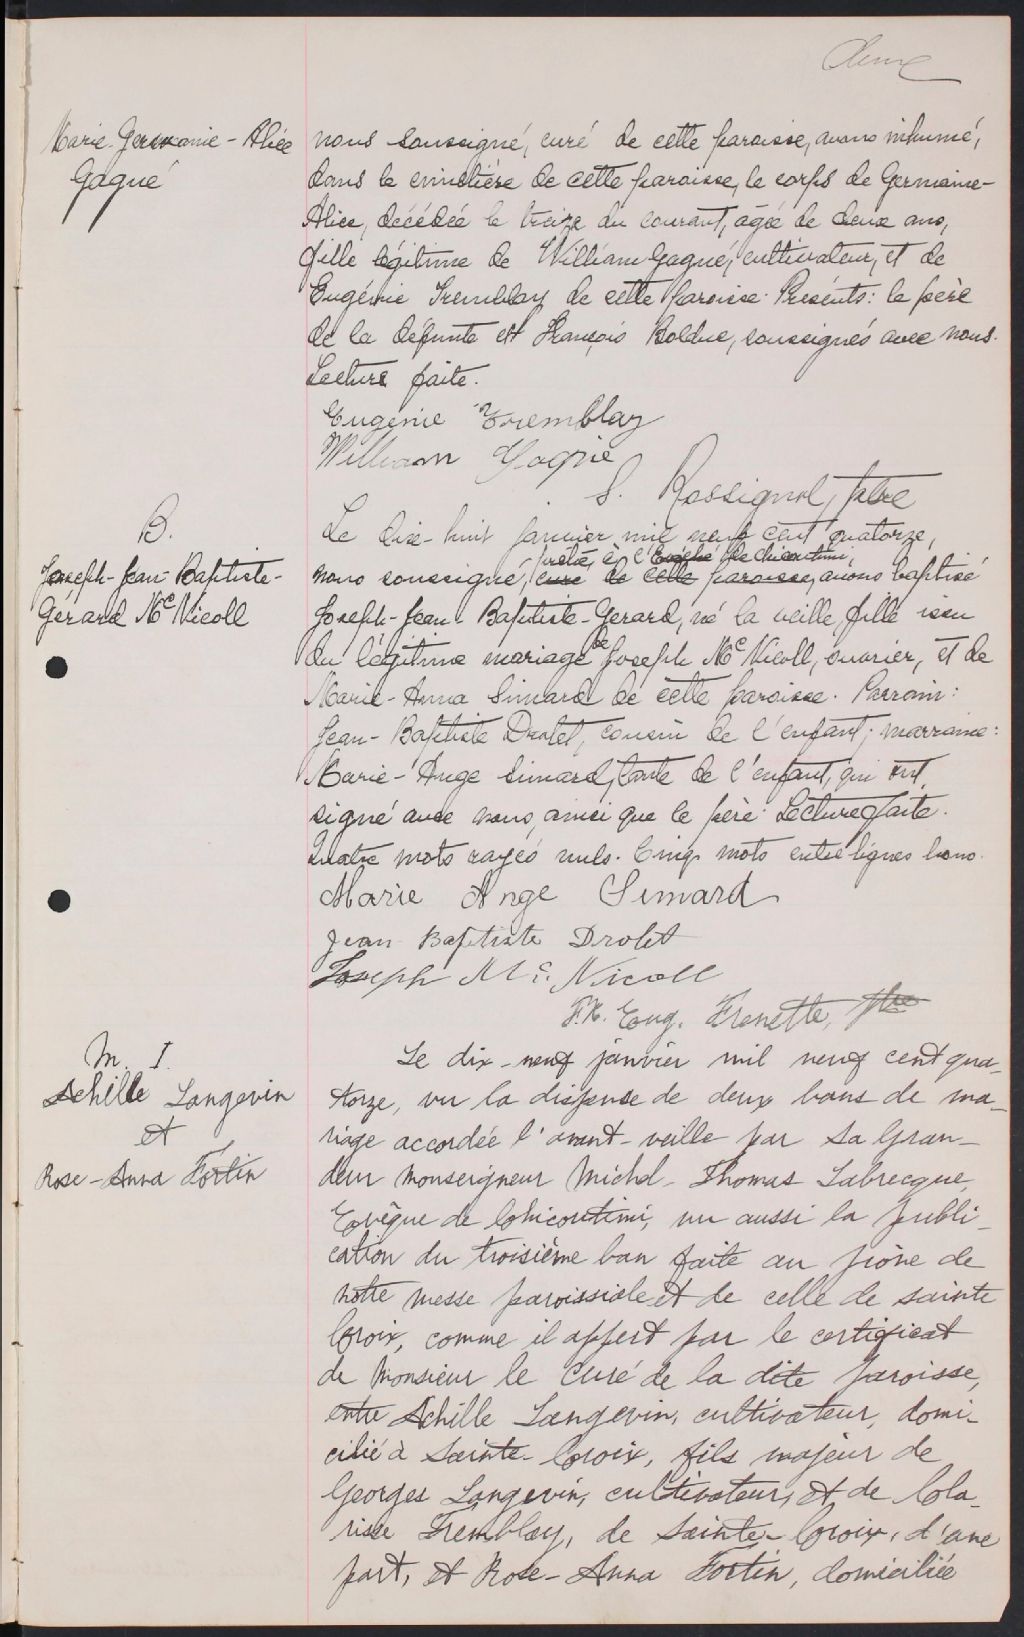 deux
Marie-Germaine-Alice
Gagné
nous soussigné, curé de cette paroisse, avons inhumé,
dans le cimetière de cette paroisse, le corps de Germaine-
Alice, décédée le treize du courant, âgée de deux ans,
fille légitime de William Gagné, cultivateur, et de
Eugénie Tremblay de cette paroisse. Présents: le père
de la défunte et François Bolduc, soussignés avec nous.
Lecture faite.
Eugénie Tremblay
William Gagné
S. Rossignol, ptre
B.
Joseph-Jean-Baptiste-
Gérard McNicoll
Le dix-huit janvier mil neuf cent quatorze,
prêtre, à l'Evêché de Chicoutimi,
nous soussigné, curé de cette paroisse, avons baptisé
Joseph-Jean Baptiste-Gerard, né la veille, fille issu
du légitime mariage de Joseph McNicoll, ouvrier, et de
Marie-Anna Simard de cette paroisse. Parrain:
Jean-Baptiste Drolet, cousin de l'enfant; marraine:
Marie-Ange Simard, tante de l'enfant, qui ont
signé avec nous, ainsi que le père. Lecture faite.
Quatre mots rayés nuls. Cinq mots entre lignes bons.
Marie Ange Simard
Jean-Baptiste Drolet
Joseph Mc. Nicoll
Eug. Frenette, ptre
M. I.
Achille Langevin
et
Rose-Anna Fortin
Le dix-neuf janvier mil neuf cent qua-
torze, vu la dispense de deux bans de ma-
riage accordée l'avant-veille par Sa Gran-
deur Monseigneur Michel-Thomas Labrecque,
Evêque de Chicoutimi, vu aussi la publi-
cation du troisième ban faite au prône de
notre messe paroissiale et de celle de sainte
Croix, comme il appert par le certificat
de Monsieur le Curé de la dite paroisse,
entre Achille Langevin, cultivateur, domi-
cilié à Sainte-Croix, fils majeur de
Georges Langevin, cultivateur, et de Cla-
risse Tremblay, de Sainte-Croix, d'une
part, et Rose-Anna Fortin, domiciliée